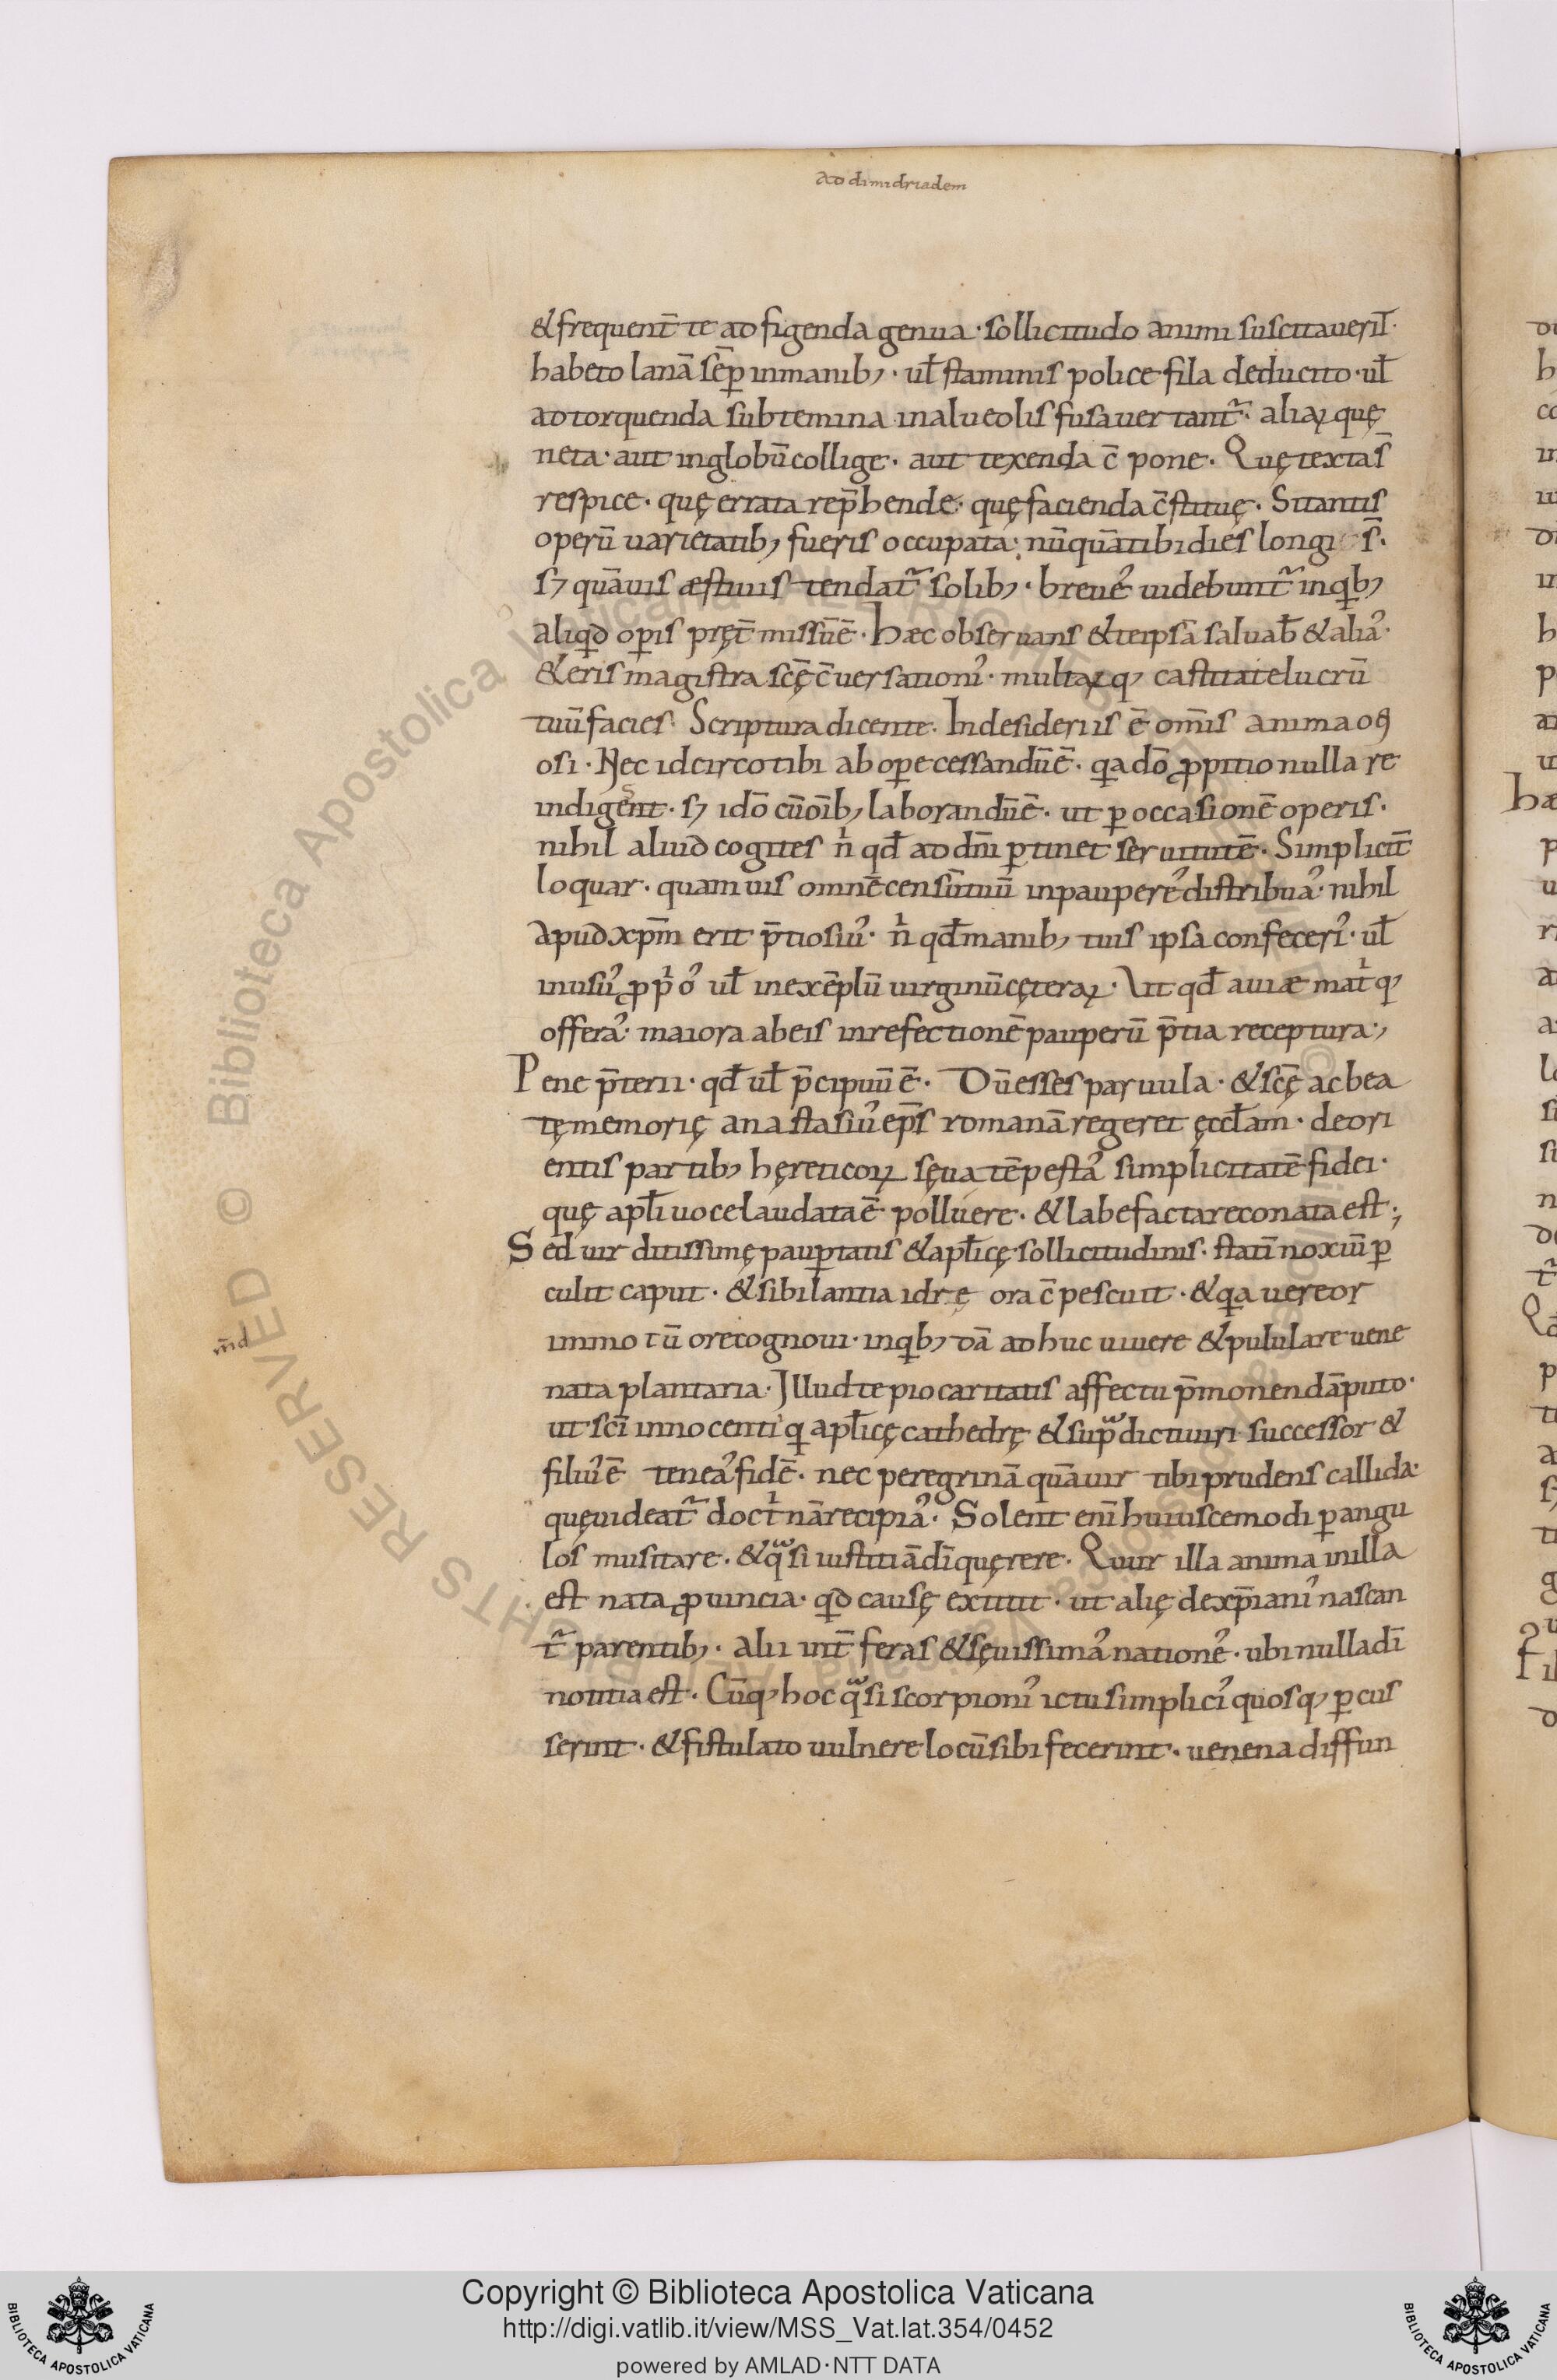 ad dimidriadem
& frequent̄ te ad figenda genua · sollicitudo animi suscitaverit̄·
habeto lanā sēp inmanib; · ul̄ staminis police fila deducito · ul̄
ad torquenda subtemina inalveolis fusa vertant᷑· aliaꝝ quę
neta · aut inglobū collige · aut texenda c̄pone · Quę textas̄
respice · quę errata rep̄hende · quę facienda c̄stituę · Si tantis
operū varietatib; fueris occupata · nūquā tibi dies longi s̄·
s; quāvis æstivis tendat᷑ solib; · breve᷒ videbunt᷑ inqib;
aliqid opis pręt̄missū ē · Hæc observans & teipsā salvab̄ & alia᷒·
& eris magistra scę̄ c̄versationi᷒ · multaꝝ q; castitate lucrū
tuū facies · Scriptura dicente · Indesideriis ē om̄is anima oꝯ
osi · Nec idcirco tibi ab ope cessandū ē · qia dō ꝓpitio nulla re
indiges · s; idō cū oīb; laborandū ē · ut ꝑ occasionē operis ·
nihil aliud cogites n̍ qđ ad dn̄i ꝑtinet servitutē · Simplicit̄
loquar · quamvis omnē censū tuū inpaupere᷒ distribua᷒ · nihil
apud xp̄m erit p̄tiosiu᷒ · n̍ qđ manib; tuis ipsa confeceri᷒ · ul̄
inusu᷒ ꝓp̍o᷒ ul̄ inexēplū virginū cęteraꝝ · Ut qđ aviæ mat̍q;
offera᷒ · maiora abeis inrefectionē pauperū p̄tia receptura ·,
Pene p̄terii · qđ ul̄ p̄cipuū ē · Dū esses parvula · & scę̄ ac bea
tę memorię anastasiu᷒ ep̄s romanā regeret ęccl̄am · deori
entis partib; hęreticoꝝ sęva tēpesta᷒ simplicitatē fidei ·
quę apl̄i voce laudata ē · polluere · & labefactare conata est ·,
Sed vir ditissimę pauꝑtatis & apl̄icę sollicitudinis · statī noxiū ꝑ
culit caput · & sibilantia idrę ora c̄pescuit · & qia vereor
immo tū ore cognovi · inqib; dā adhuc vivere & pululare vene
m̄d
nata plantaria · Illud te pio caritatis affectu p̄monendā puto ·
ut scī innocenti᷒ qi apl̄icę cathedrę & supͣdicti viri successor &
filiu᷒ ē tenea᷒ fidē · nec peregrinā quāvir tibi prudens callida
quę videat᷑ doct̍nā recipia᷒ · Solent enī huiuscemodi ꝑ angu
los musitare · & qͣsi iustitiā dī quęrere · Quur illa anima inilla
est nata ꝓvincia · qid causę extitit · ut alię dexp̄iani᷒ nascan
t᷑ parentib; · alii int̄ feras & sęvissima᷒ natione᷒ · ubi nulla dī
notitia est · Cūq; hoc qͣsi scorpioni᷒ ictu simplici᷒ quosq; ꝑcus
serint · & fistulato vulnere locū sibi fecerint · venena diffun
Copyright © Biblioteca Apostolica Vaticana
http://digi.vatlib.it/view/MSS_Vat.lat.354/0452
powered by AMLAD·NTT DATA